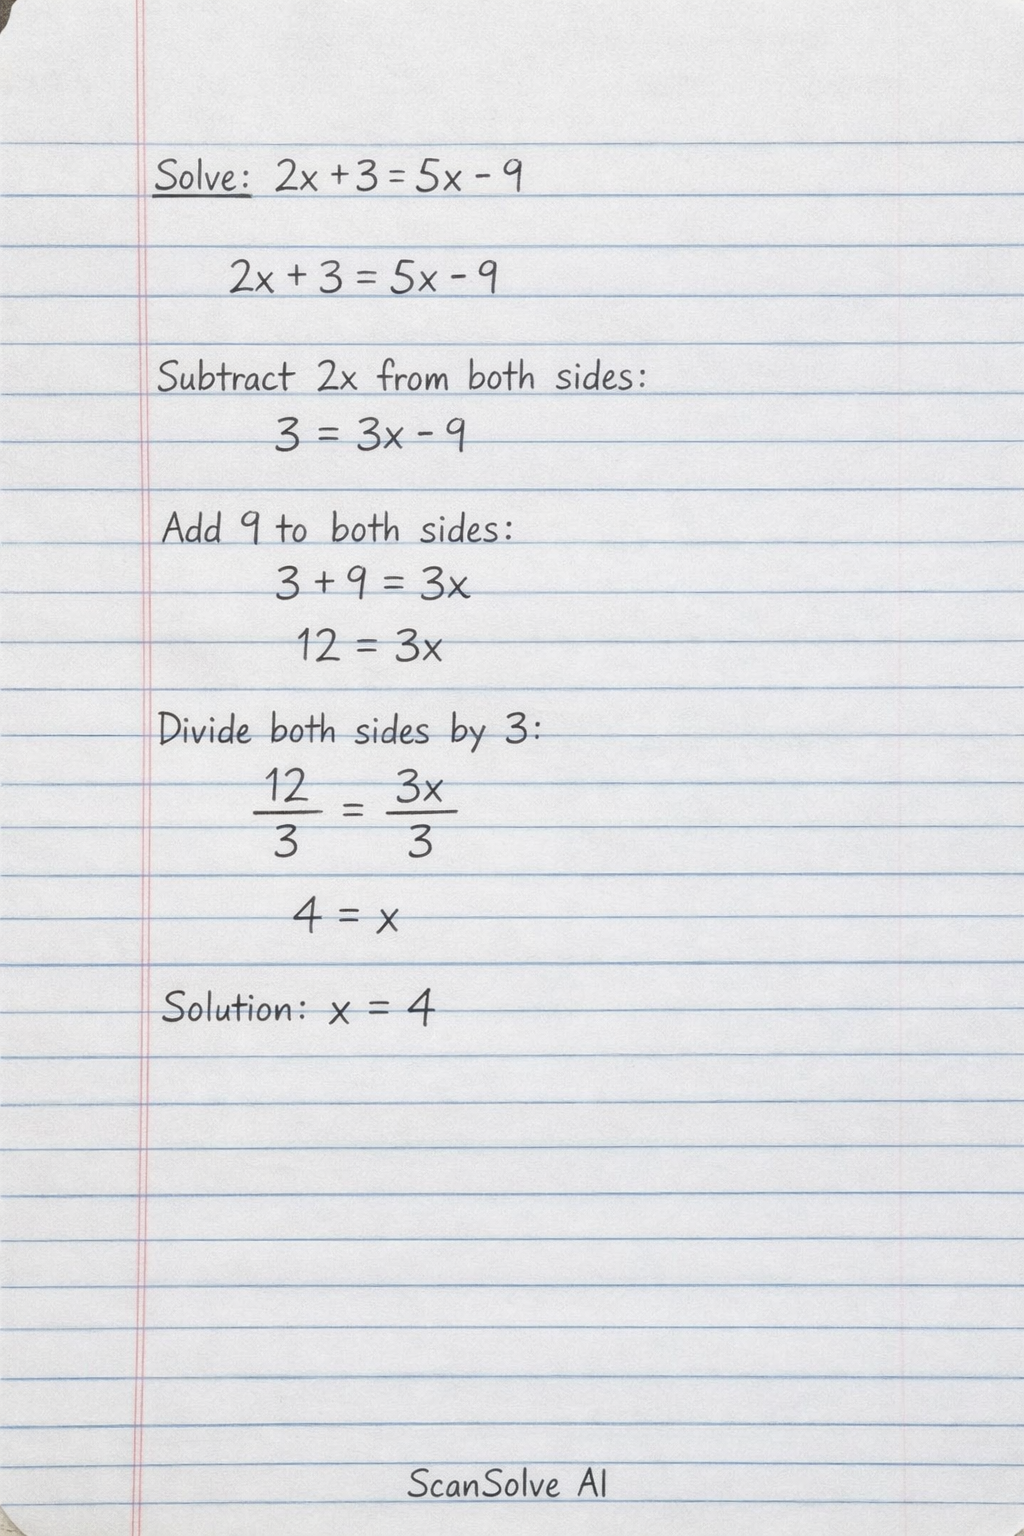 Solve: 2x + 3 = 5x - 9
2x + 3 = 5x - 9
Subtract 2x from both sides:
3 = 3x - 9
Add 9 to both sides:
3 + 9 = 3x
12 = 3x
Divide both sides by 3:
12/3 = 3x/3
4 = x
Solution: x = 4
ScanSolve AI